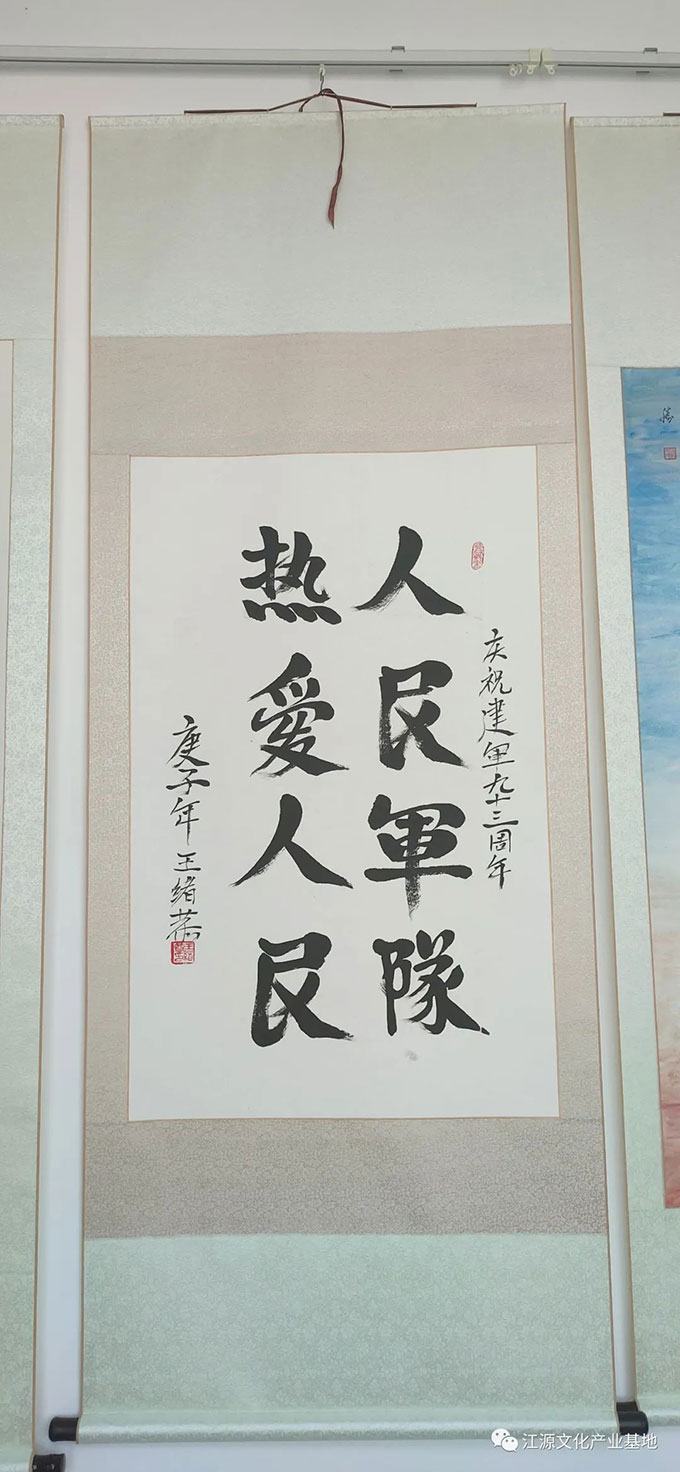 庆祝建军九十三周年
人民軍隊
热爱人民
庚子年 王绪恭
江源文化产业基地